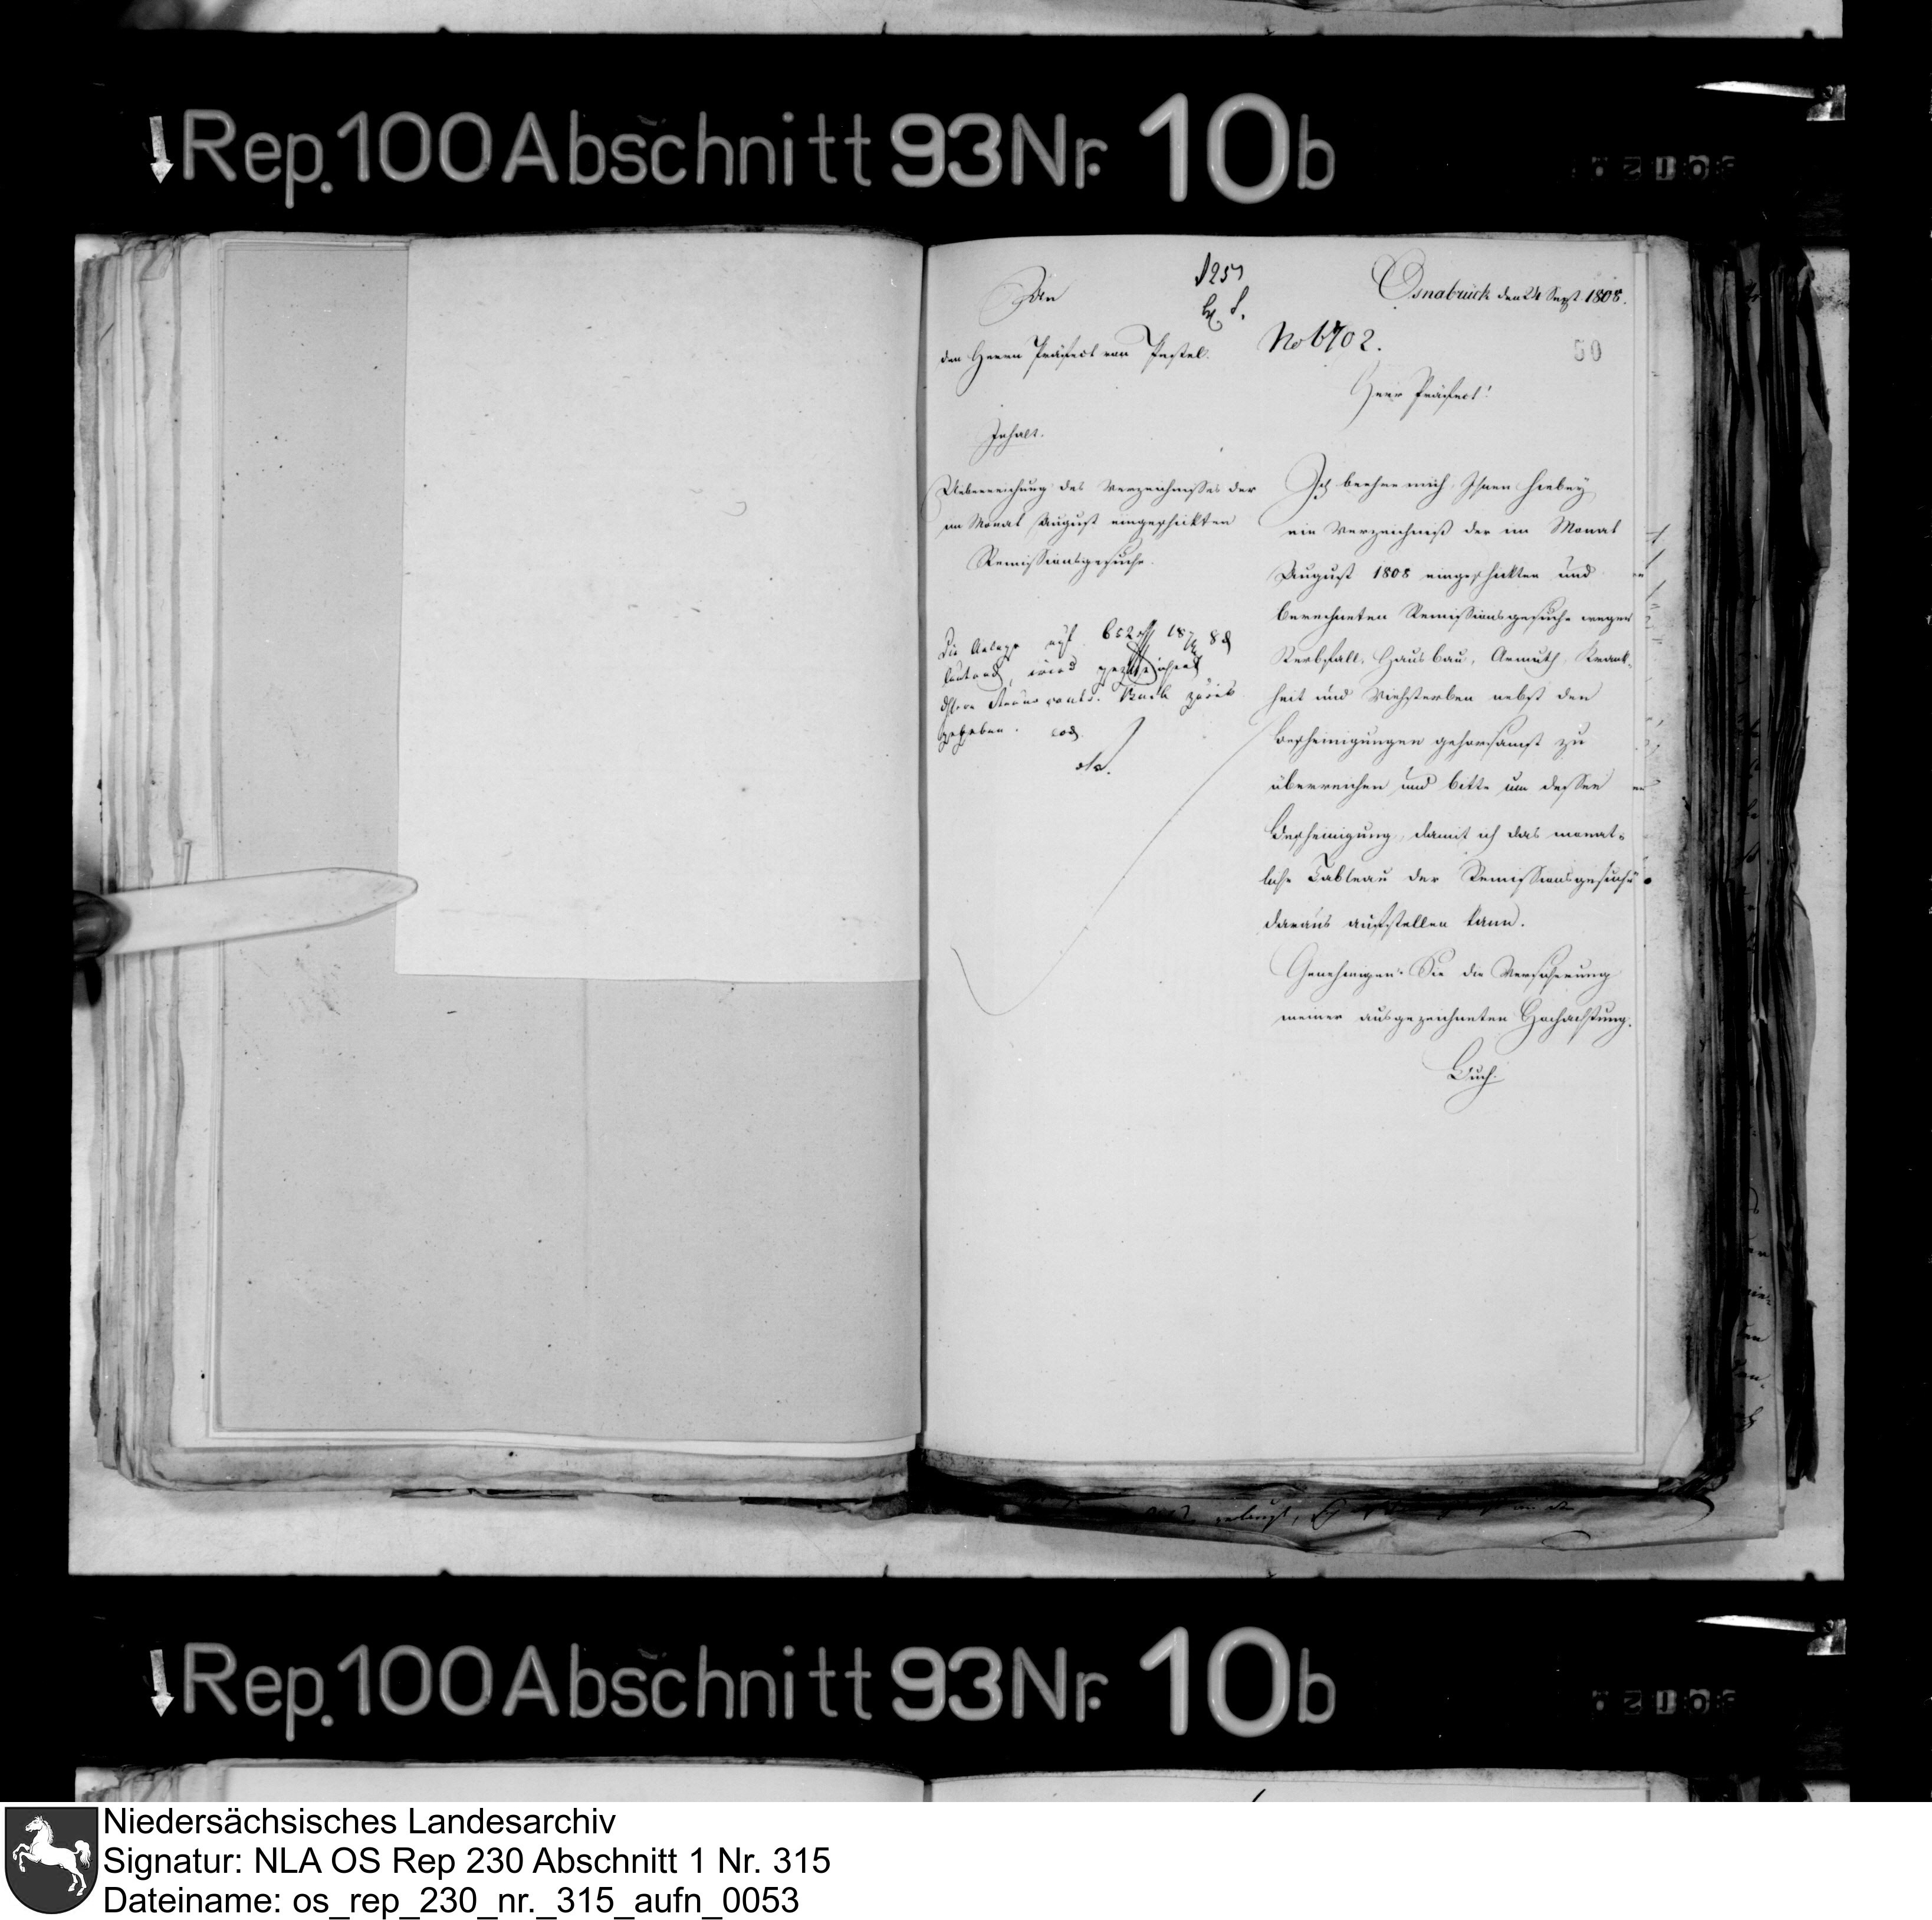 Rep. 100 Abschnitt 93 Nr. 10b
Osnabrück den 24 Sept. 1808.
An
No 6702.
den Herrn Präfect von Pestel.
50
Herr Präfect!
Inhalt.
Ueberreichung des Verzeichnisses der
im Monat August eingeschickten
Remissionsgesuche.
Die Anlage auf
lautend, wird
zurück
gegeben.
Ich beehre mich, Ihnen hiebey
ein Verzeichniß der im Monat
August 1808 eingeschickten und
berechneten Remissionsgesuche wegen
Sterbfall, Hausbau, Armuth, Krank-
heit und Viehsterben nebst den
Bescheinigungen gehorsamst zu
überreichen und bitte um dessen
Bescheinigung, damit ich das monat-
liche Tableau der Remissionsgesuche
daraus aufstellen kann.
Genehmigen Sie die Versicherung
meiner ausgezeichneten Hochachtung.
Buch.
Rep. 100 Abschnitt 93 Nr. 10b
Niedersächsisches Landesarchiv
Signatur: NLA OS Rep 230 Abschnitt 1 Nr. 315
Dateiname: os_rep_230_nr._315_aufn_0053